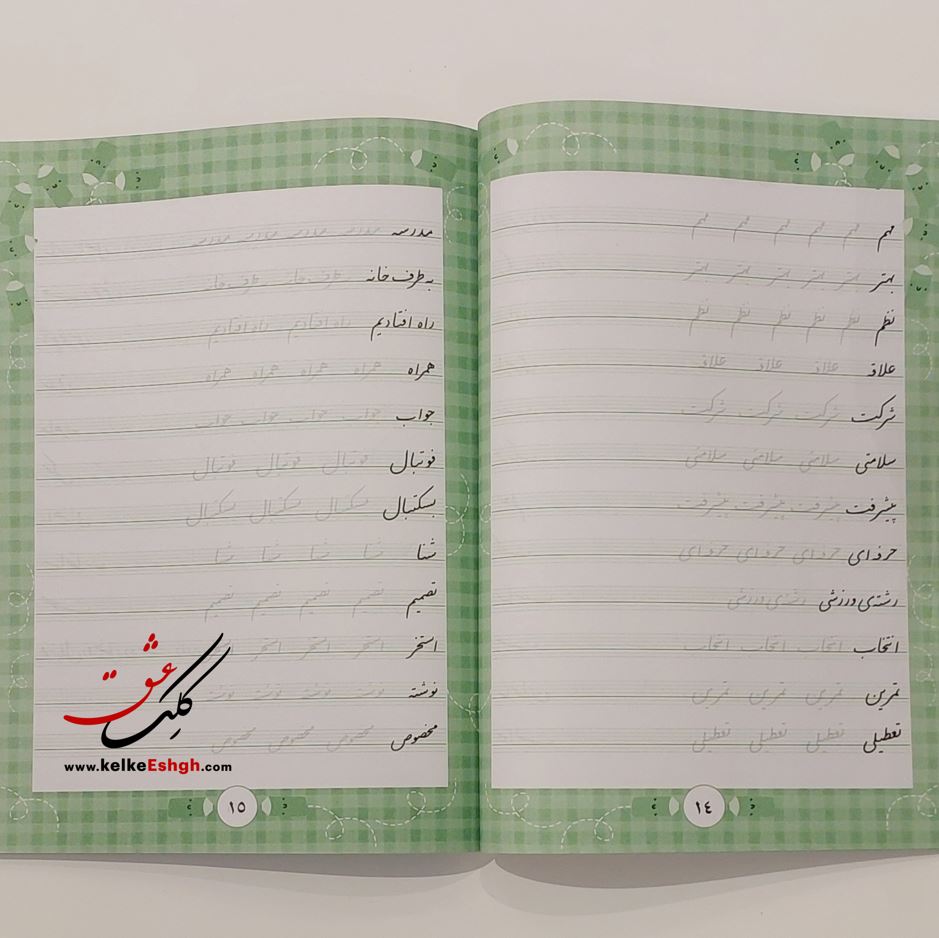 مهم مهم مهم مهم مهم مهم
بهتر بهتر بهتر بهتر بهتر بهتر
نظم نظم نظم نظم نظم نظم
علاقه علاقه علاقه علاقه
شرکت شرکت شرکت شرکت
سلامتی سلامتی سلامتی سلامتی
پیشرفت پیشرفت پیشرفت پیشرفت
حرفه‌ای حرفه‌ای حرفه‌ای حرفه‌ای
رشته‌ی ورزشی رشته‌ی ورزشی
انتخاب انتخاب انتخاب انتخاب
تمرین تمرین تمرین تمرین
تعطیلی تعطیلی تعطیلی تعطیلی
۱۴
مدرسه مدرسه مدرسه مدرسه مدرسه
به طرف خانه به طرف خانه به طرف خانه
راه افتادیم راه افتادیم راه افتادیم
همراه همراه همراه همراه همراه
جواب جواب جواب جواب جواب
فوتبال فوتبال فوتبال فوتبال
بسکتبال بسکتبال بسکتبال بسکتبال
شنا شنا شنا شنا شنا
تصمیم تصمیم تصمیم تصمیم تصمیم
استخر استخر استخر استخر
نوشته نوشته نوشته نوشته نوشته
مخصوص مخصوص مخصوص مخصوص
۱۵
کلک عشق
www.kelkeEshgh.com